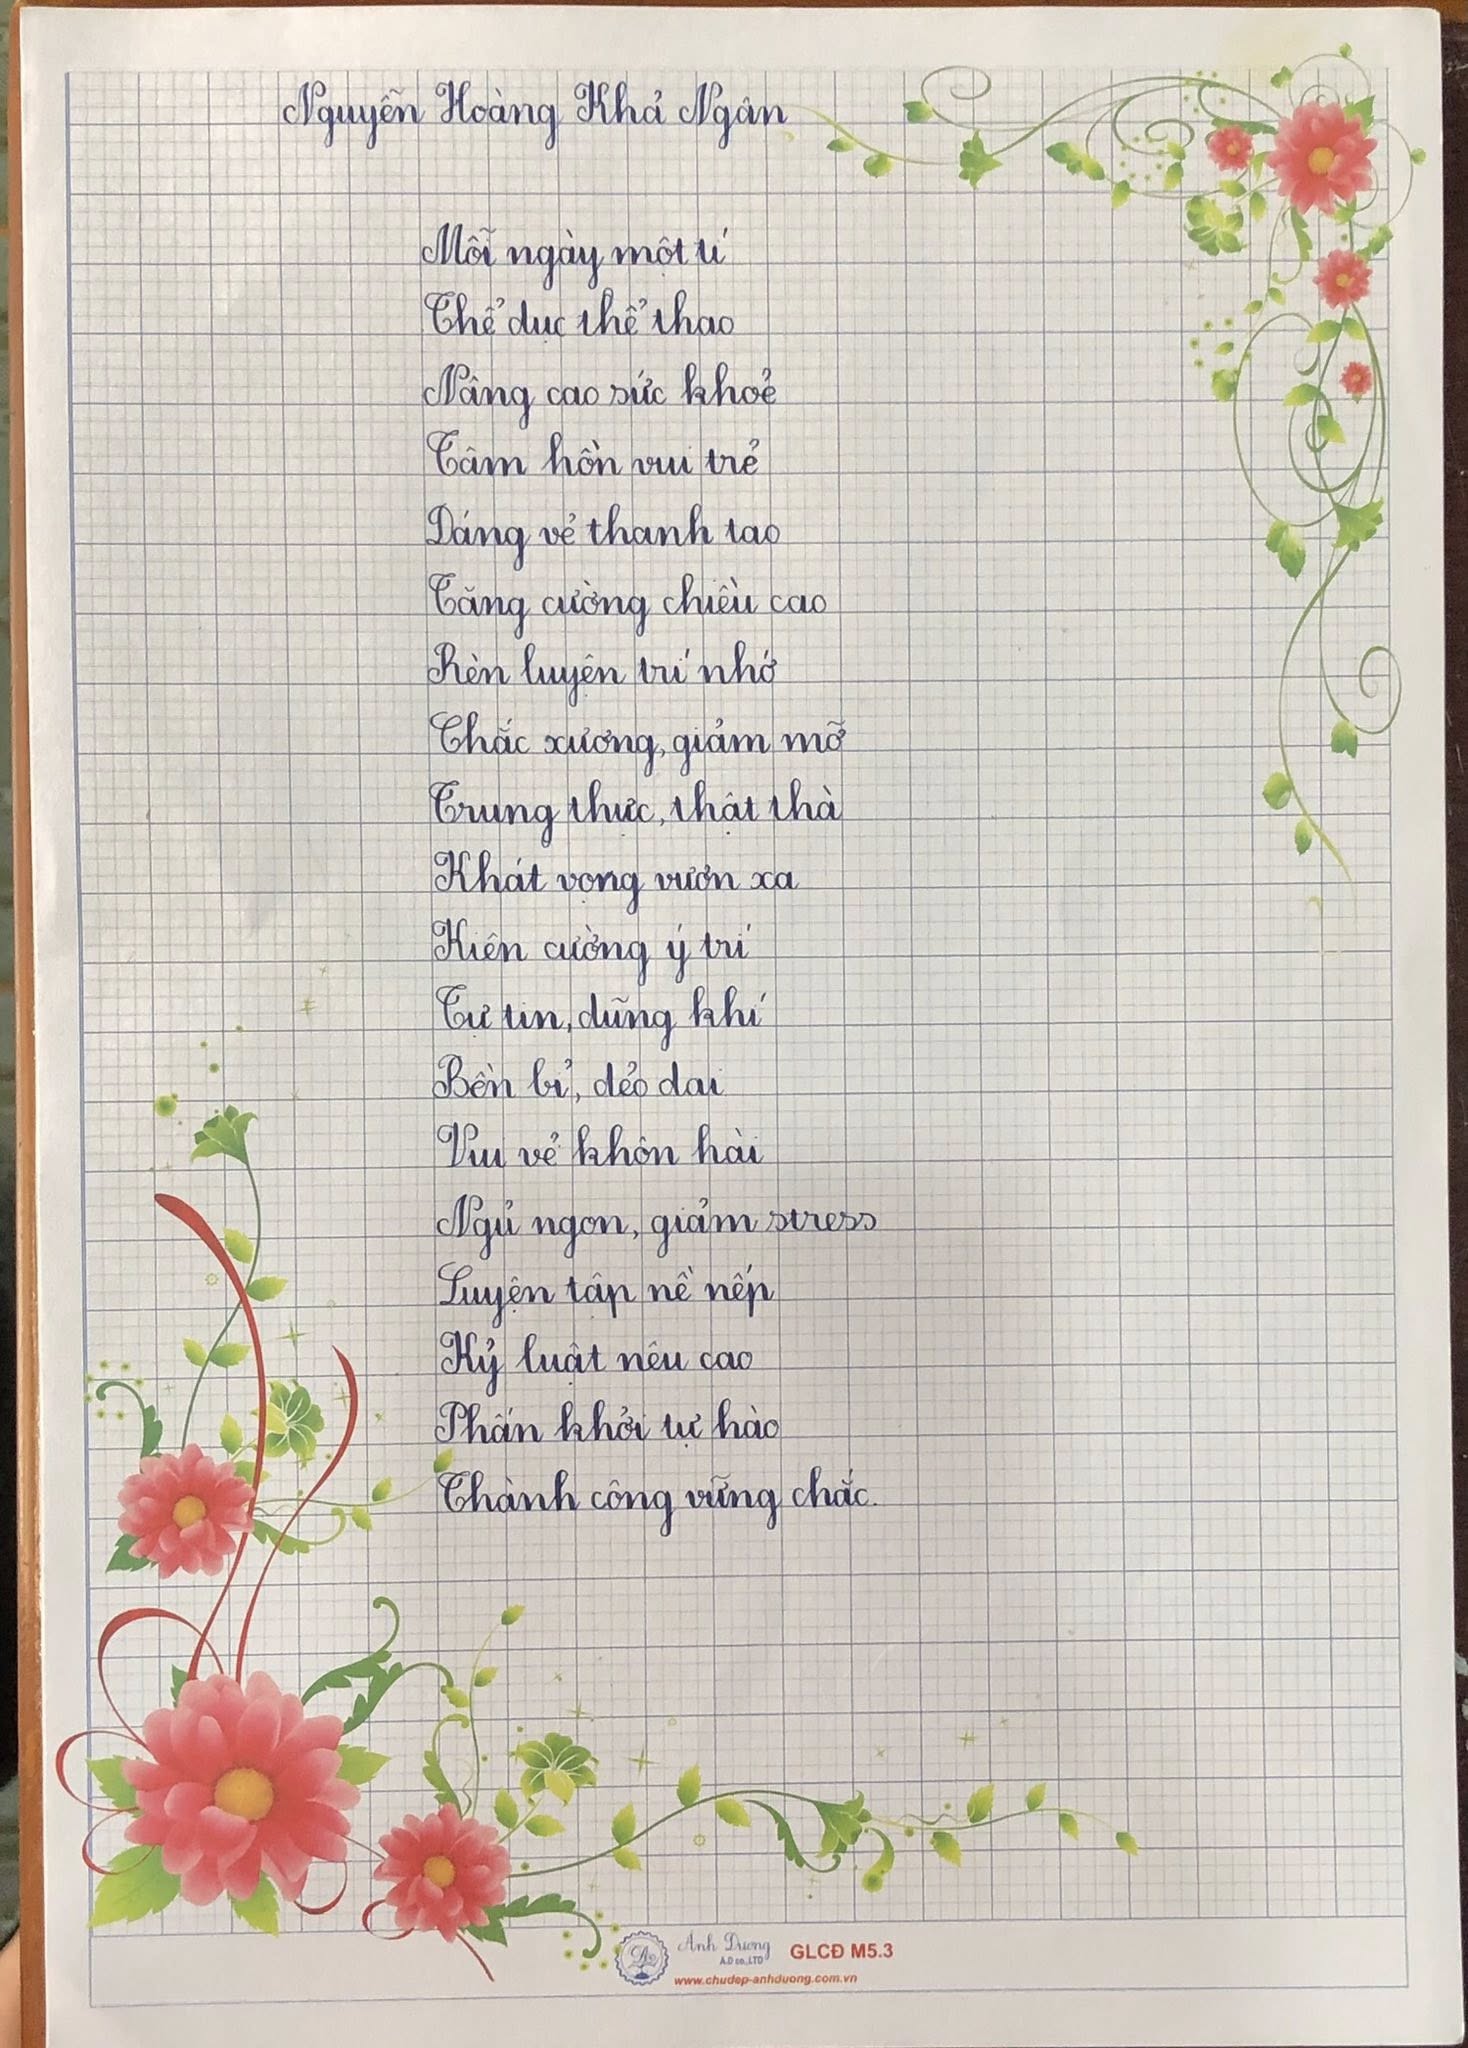 Nguyễn Hoàng Khả Ngân
Mỗi ngày một tí
Thể dục thể thao
Nâng cao sức khoẻ
Tâm hồn vui trẻ
Dáng vẻ thanh tao
Tăng cường chiều cao
Rèn luyện trí nhớ
Chắc xương, giảm mỡ
Trung thực, thật thà
Khát vọng vươn xa
Kiên cường ý trí
Tự tin, dũng khí
Bền bỉ, dẻo dai
Vui vẻ khôn hài
Ngủ ngon, giảm stress
Luyện tập nề nếp
Kỷ luật nêu cao
Phấn khởi tự hào
Thành công vững chắc.
Ánh Dương GLCĐ M5.3
A.D co.,LTD
www.chudep-anhduong.com.vn